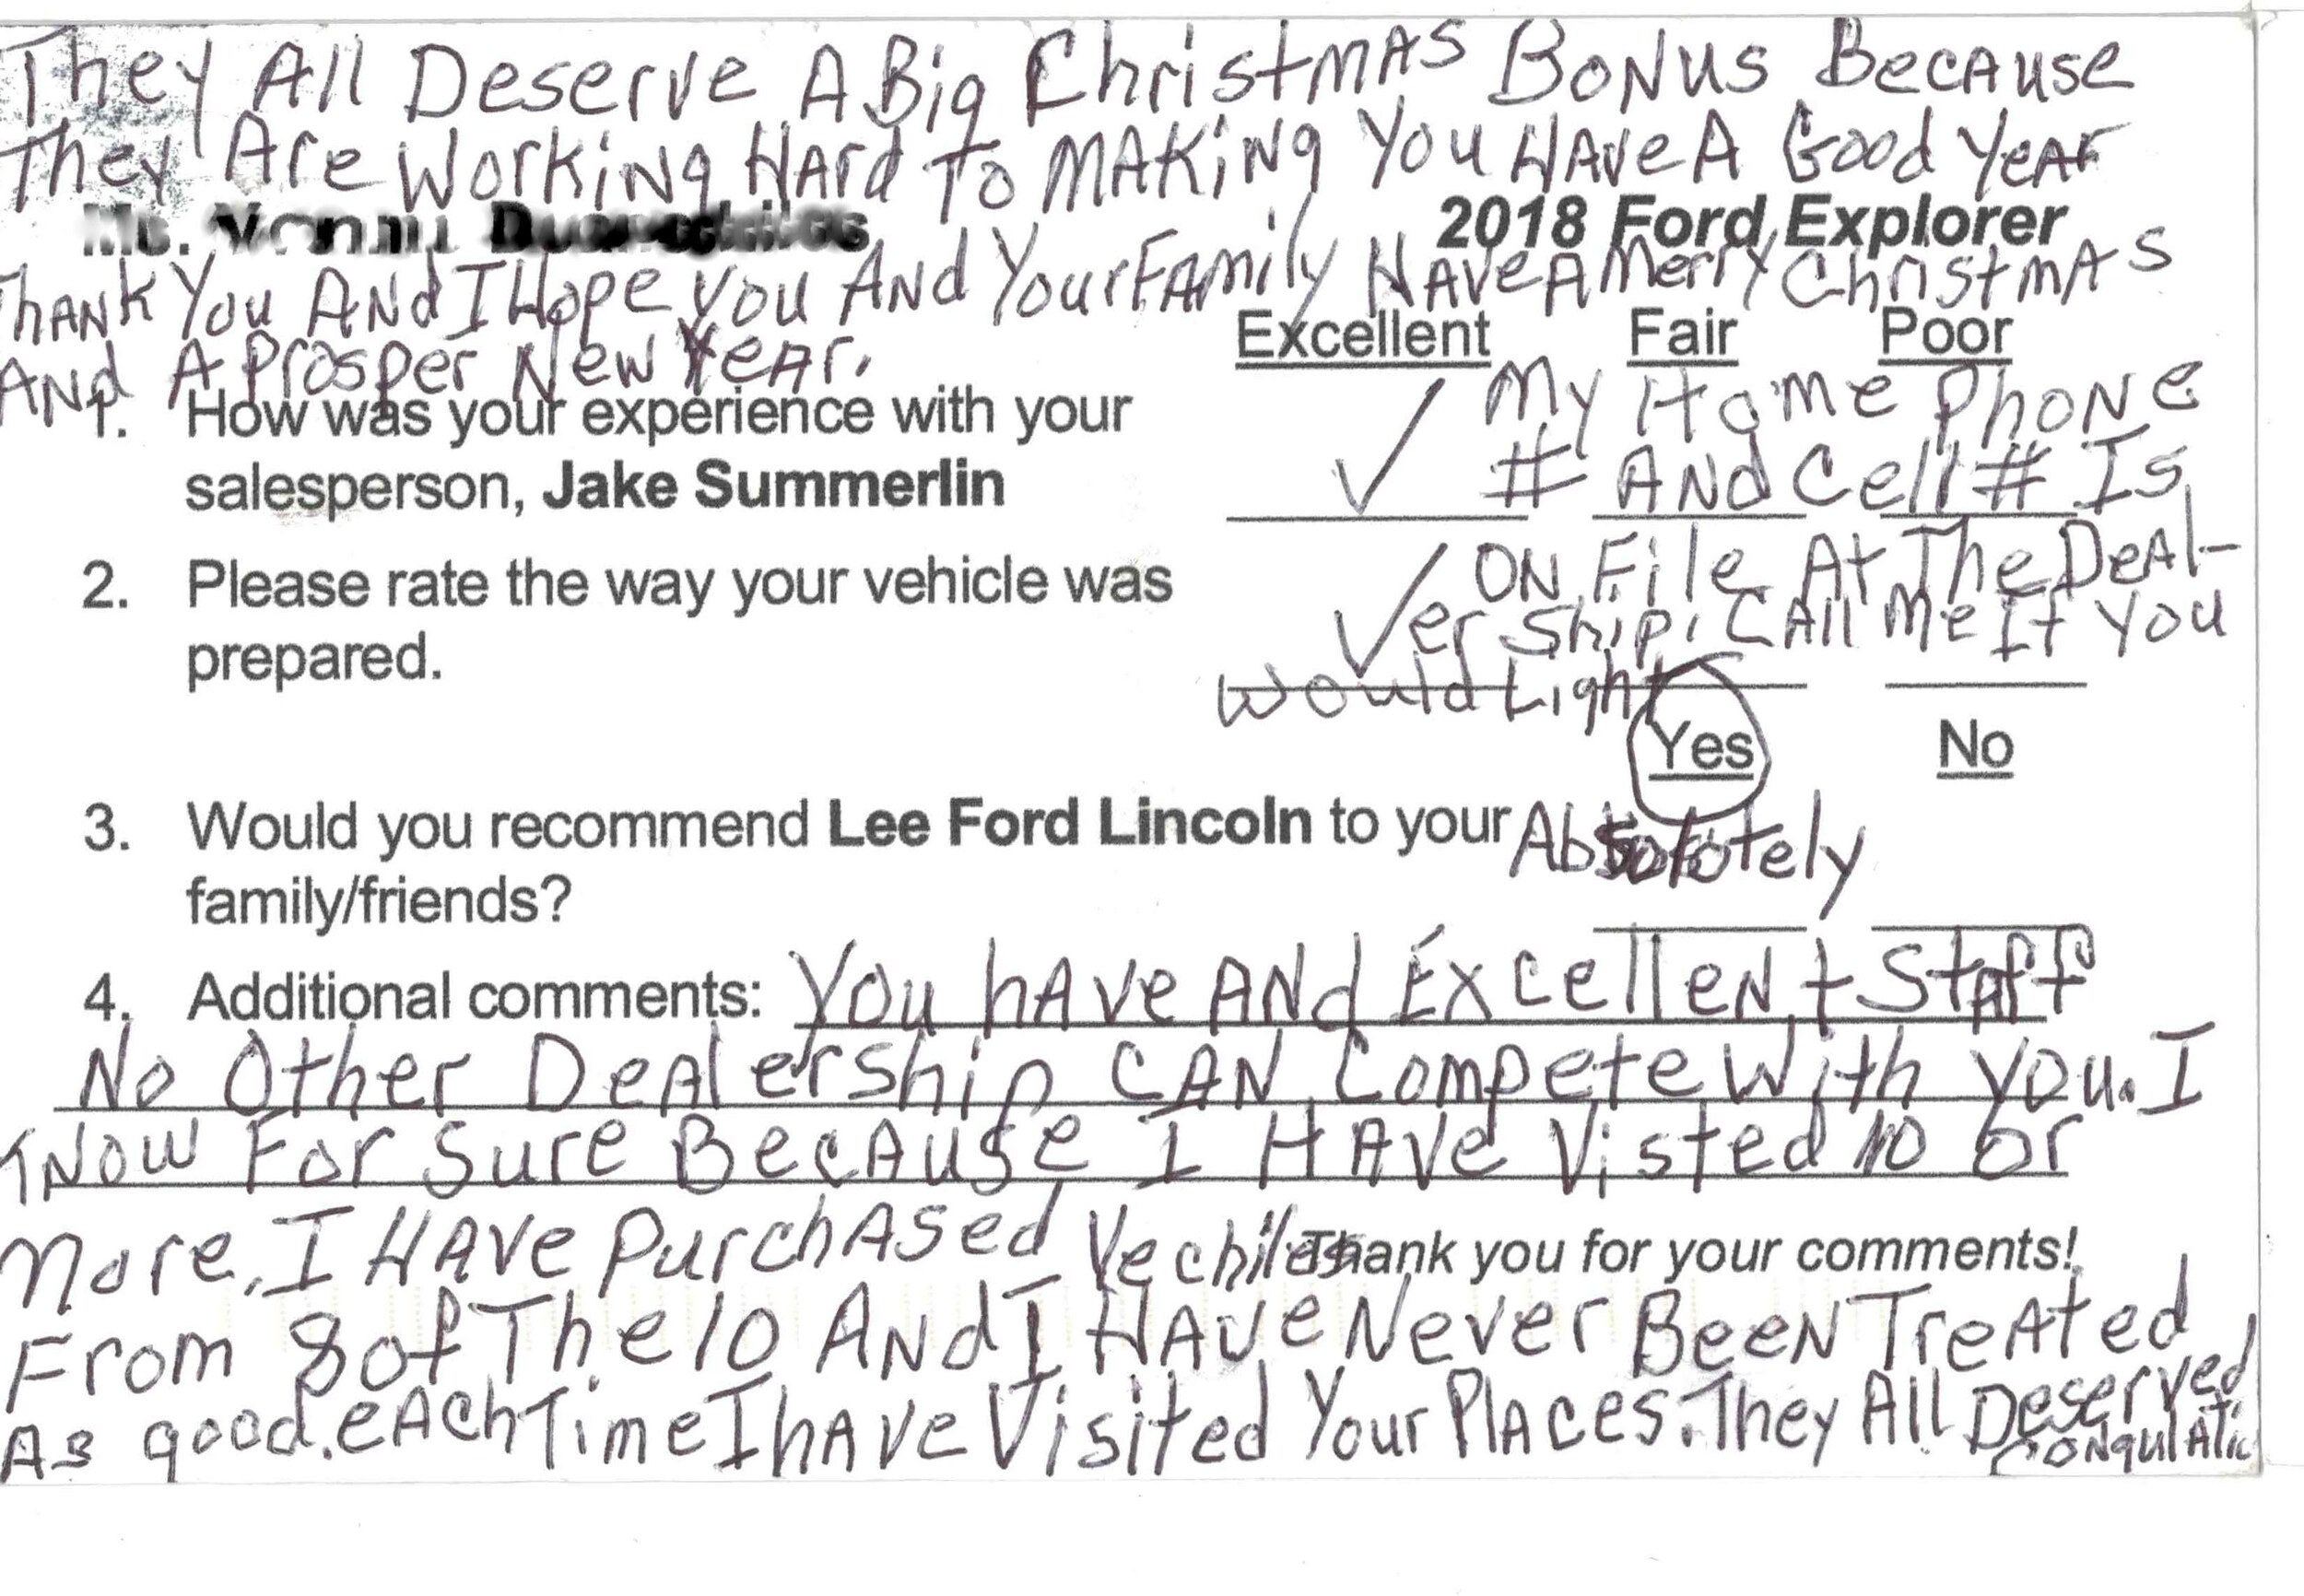 They All Deserve A Big Christmas Bonus Because
They Are Working Hard To Making You Have A Good Year
Ms.
2018 Ford Explorer
Thank You And I Hope You And Your Family Have A Merry Christmas
And A Prosper New Year.
Excellent Fair Poor
1. How was your experience with your
salesperson, Jake Summerlin
✓ My Home Phone
# And Cell # Is
On File At The Deal-
er Ship. Call Me If You
Would Light
2. Please rate the way your vehicle was
prepared.
✓
Yes No
3. Would you recommend Lee Ford Lincoln to your
family/friends?
Absolotely
4. Additional comments: You have And Excellent Staff
No Other Dealership Can Compete With You. I
Know For Sure Because I Have Visted 10 or
More. I Have Purchased Vechiles
Thank you for your comments!
From 8 of The 10 And I Have Never Been Treated
As good. each Time I have Visited Your Places. They All Deserved